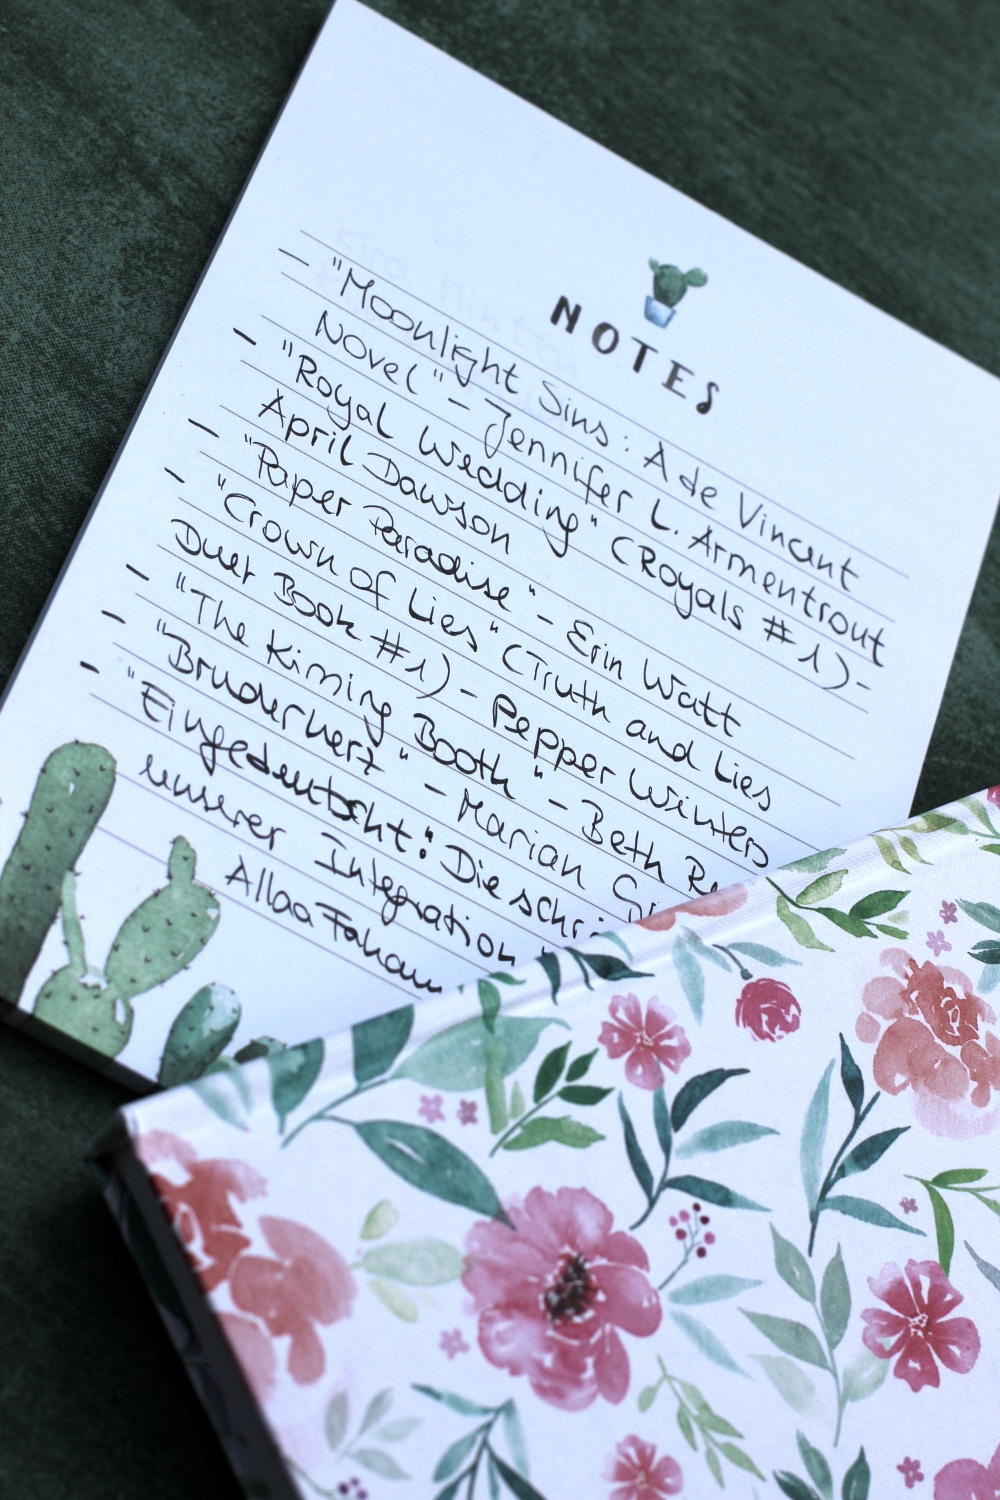 NOTES
- "Moonlight Sins: A de Vincent
Novel" - Jennifer L. Armentrout
- "Royal Wedding" (Royals #1) -
April Dawson
- "Paper Paradise" - Erin Watt
- "Crown of Lies" (Truth and Lies
Duet Book #1) - Pepper Winters
- "The Kissing Booth" - Beth Re
- "Bruderherz" - Marian G
- "Eingedeutscht": Die schri
unserer Integration"
Allaa Faham